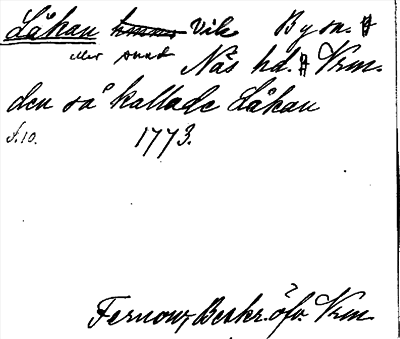 Låkan Vik By sn.
eller sund Näs hd. Vrm.
den så kallade Låkan
s. 10. 1773.
Fernow, Beskr. öfv. Vrm.